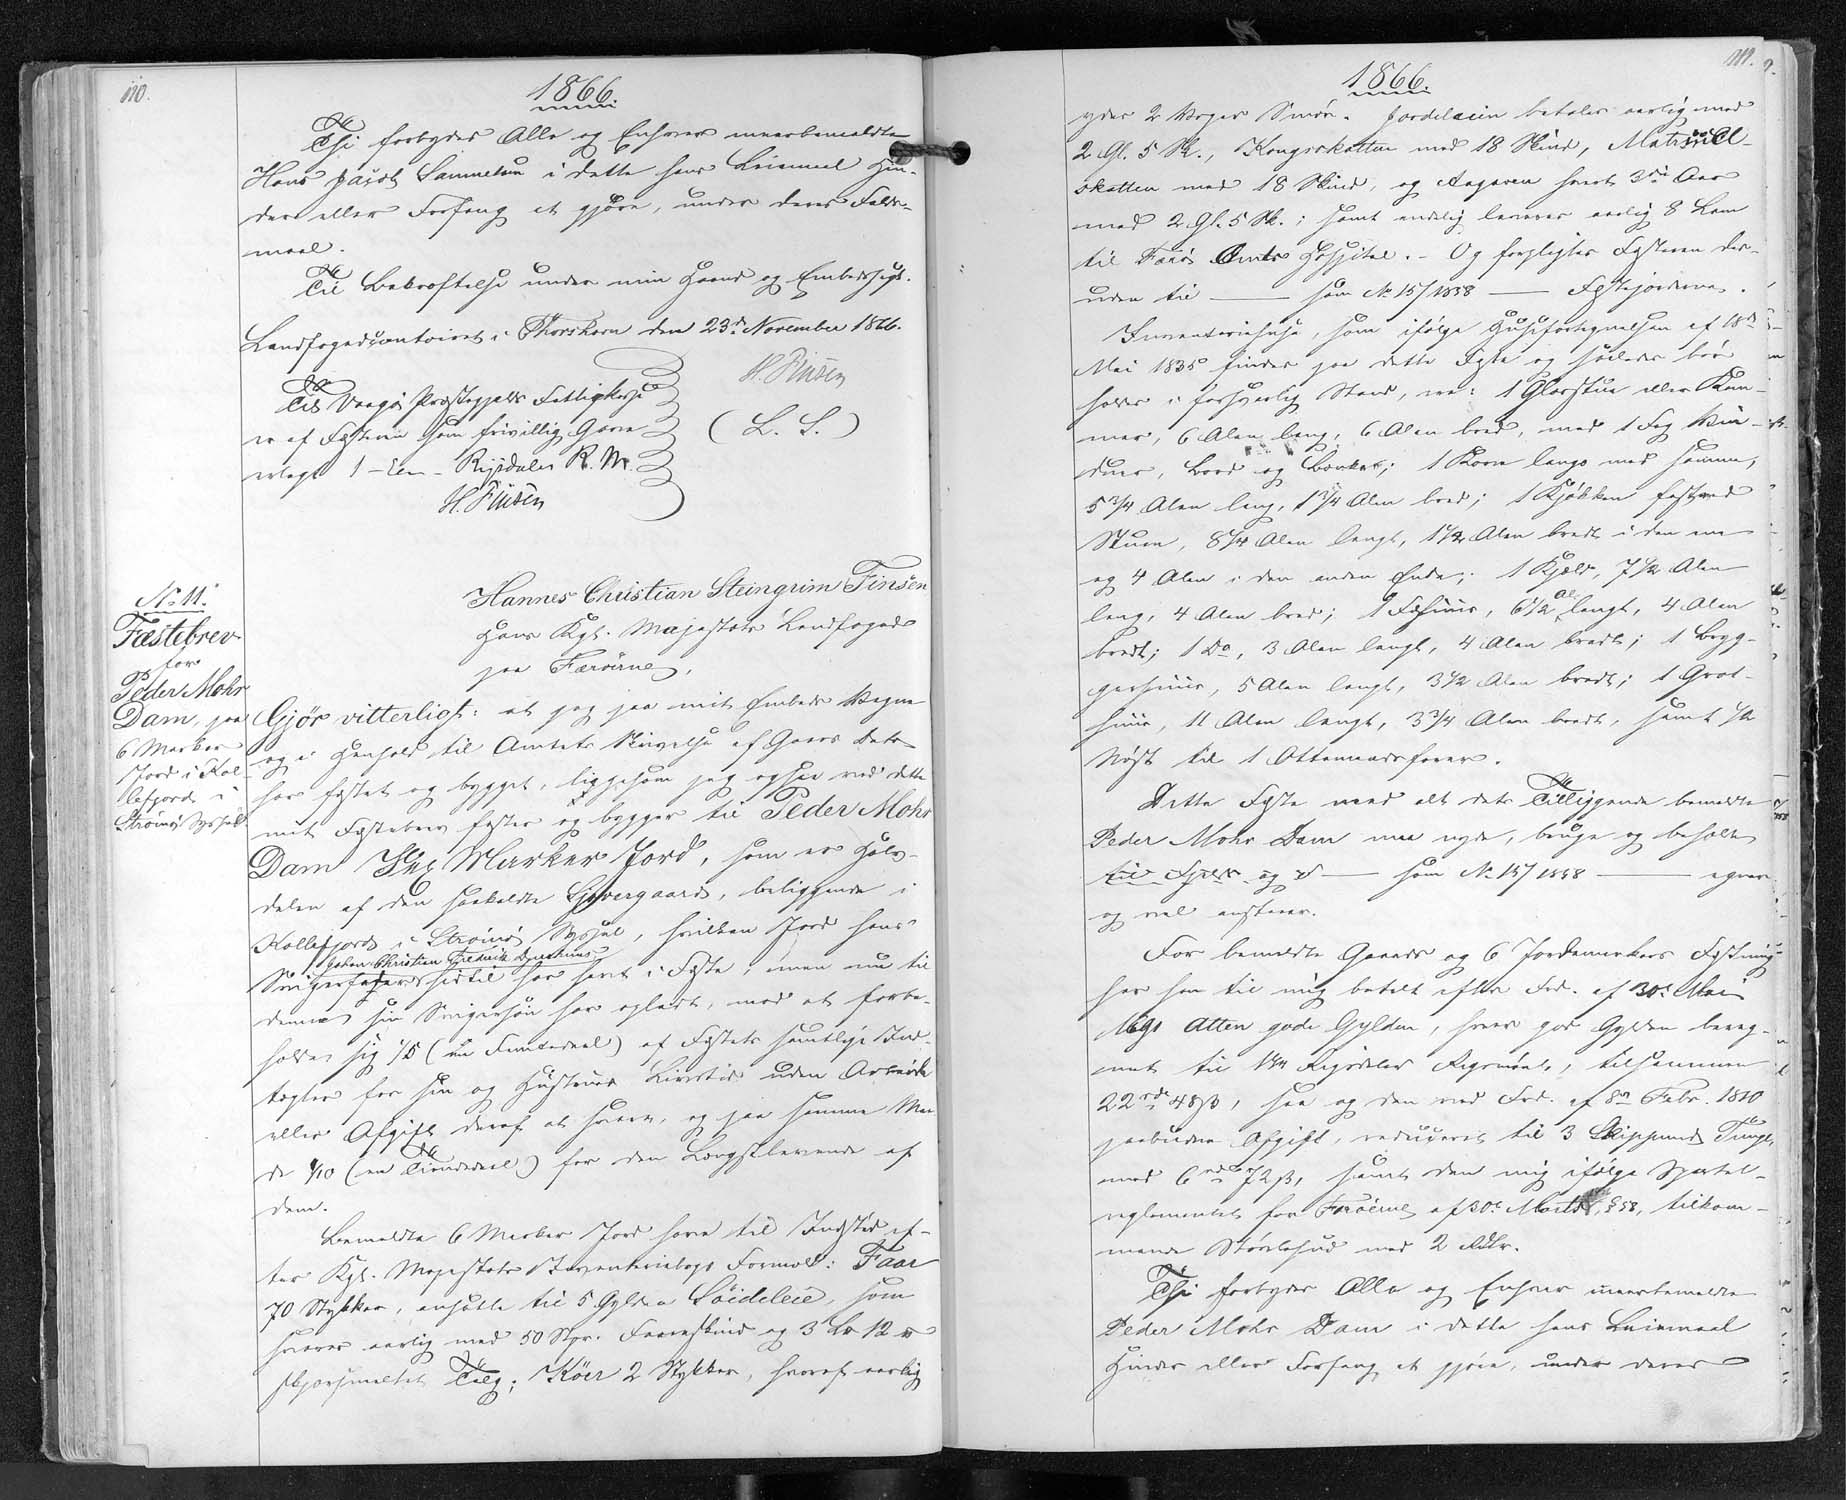 110.
1866.
Thi forbydes Alle og Enhver meerbemeldte
Hans Jacob Samuelsen i dette hans Leiemaal Hin-
der eller Forfang at gjøre, under deres Falds-
maal.
Til Bekræftelse under min Haand og Embedssegl.
Landfogedcontoiret i Thorshavn den 23de November 1866.
H. Finsen
(L. S.)
Til Vaagø Præstegjelds Fattigkasse
er af Fæsteren som frivillig Gave
erlagt 1 – Een – Rigsdaler R. M.
H. Finsen
No 11.
Fæstebrev
for
Peder Mohr
Dam, paa
6 Marker
Jord i Kol-
lefjord i
Strømø Syssel.
Hannes Christian Steingrim Finsen
Hans Kgl. Majestæts Landfoged
paa Færøerne,
Gjør vitterligt: at jeg paa mit Embeds Vegne
og i Henhold til Amtets Skrivelse af Gaars Dato
har fæstet og bygget, ligesom jeg ogsaa ved dette
mit Fæstebrev fæster og bygger til Peder Mohr
Dam Sex Marker Jord, som er Halv-
delen af den saakaldte Sjovergaard, beliggende i
Kollefjord i Strømø Syssel, hvilken Jord hans
Johan Christian Fredrik Djurhuus
Svigerfader hidtil har havt i Fæste, men nu til
denne sin Svigersøn har opladt, mod at forbe-
holde sig 1/5 (en Femtedeel) af Fæstets samtlige Ind-
tægter for sin og Hustrues Livstid uden Arbeide
eller Afgift deraf at svare, og paa samme Maa-
de 1/10 (en Tiendedeel) for den Længstlevende af
dem.
Bemeldte 6 Marker Jord have til Indsted ef-
ter Kgl. Majestæts Inventariebogs Formeld: Faar
70 Stykker, ansatte til 5 Gylden Søideleie, som
svares aarlig med 50 Stkr. Faareskind og 3 Lb 12 w
skjørsmeltet Talg; Køer 2 Stykker, hvoraf aarlig
111.
1866.
ydes 2 Voger Smør. Jordeleien betales aarlig med
2 Gl. 5 Sk., Kongsskatten med 18 Skind, Matricul-
skatten med 18 Skind, og Aagaven hvert 3die Aar
med 2 Gl. 5 Sk.; samt endelig leveres aarlig 8 Lam
til Færø Amts Hospital. – Og forpligtes Fæsteren des-
uden til — som No 15/1858 — Fæstejorderne.
Inventariehuse, som ifølge Huusfortegnelsen af 18de
Mai 1835 findes paa dette Fæste og saaledes bør
holdes i forsvarlig Stand, ere: 1 Glasstue eller Kam-
mer, 6 Alen lang, 6 Alen bred, med 1 Fag Vin-
duer, Bord og Bænke; 1 Kove langs med samme,
5 3/4 Alen lang, 1 3/4 Alen bred; 1 Kjøkken fast ved
Stuen, 8 1/4 Alen langt, 1 1/2 Alen bredt i den ene
og 4 Alen i den anden Ende; 1 Kjeld, 7 1/2 Alen
lang, 4 Alen bred; 1 Fæhuus, 6 1/2 Al. langt, 4 Alen
bredt; 1 Do, 3 Alen langt, 4 Alen bredt; 1 Bryg-
gerhuus, 5 Alen langt, 3 1/2 Alen bredt; 1 Grot-
huus, 11 Alen langt, 3 3/4 Alen bredt, samt 1/2
Nøst til 1 Ottemandsfarer.
Dette Fæste med alt dets Tilliggende bemeldte
Peder Mohr Dam maa nyde, bruge og beholde
— som No 15/1858 — egner
og vel anstaaer.
For bemeldte Gaards og 6 Jordemarkers Fæstning
har han til mig betalt efter Frd. af 30te Mai
1691 Atten gode Gylden, hver god Gylden bereg-
net til 1 1/4 Rigsdaler Rigsmønt, tilsammen
22 rd 48 ß, saa og den ved Frd. af 8de Febr. 1810
paabudne Afgift, reduceret til 3 Skippund Tunge,
med 6 rd 72 ß, samt den mig ifølge Sportel-
reglementet for Færøerne af 30te Marts, § 58, tilkom-
mende Støvlehud med 2 Rdlr.
Thi forbydes Alle og Enhver meerbemeldte
Peder Mohr Dam i dette hans Leiemaal
Hinder eller Forfang at gjøre, under deres